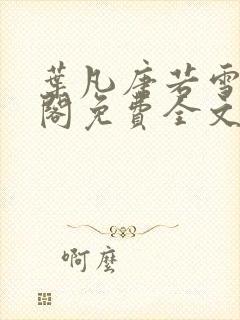 葉凡唐若雪
閣免費全文
啊麼